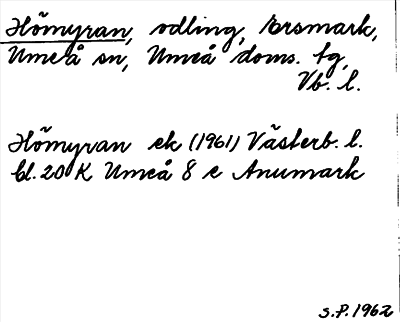 Hömyran, odling, Ersmark,
Umeå sn, Umeå doms. tg,
Vb. l.
Hömyran ek (1961) Västerb. l.
bl. 20 K Umeå 8 c Anumark
S.P. 1962